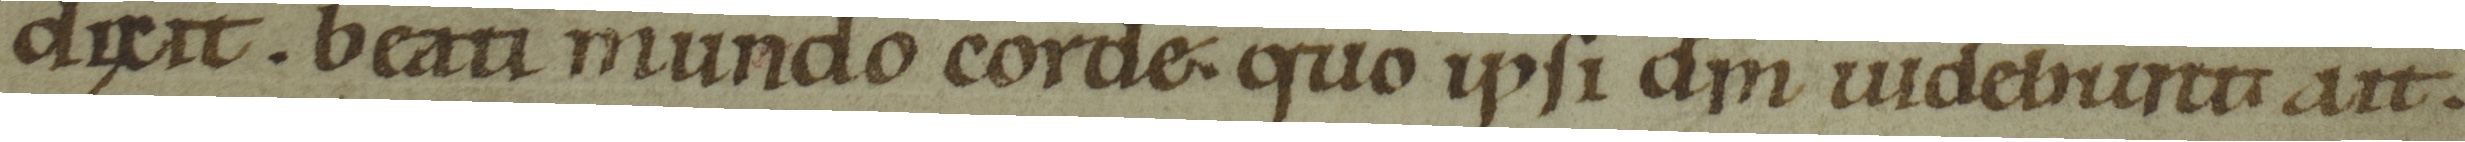 dixit. beati mundo corde. quo ipsi dm uidebunt. ait.